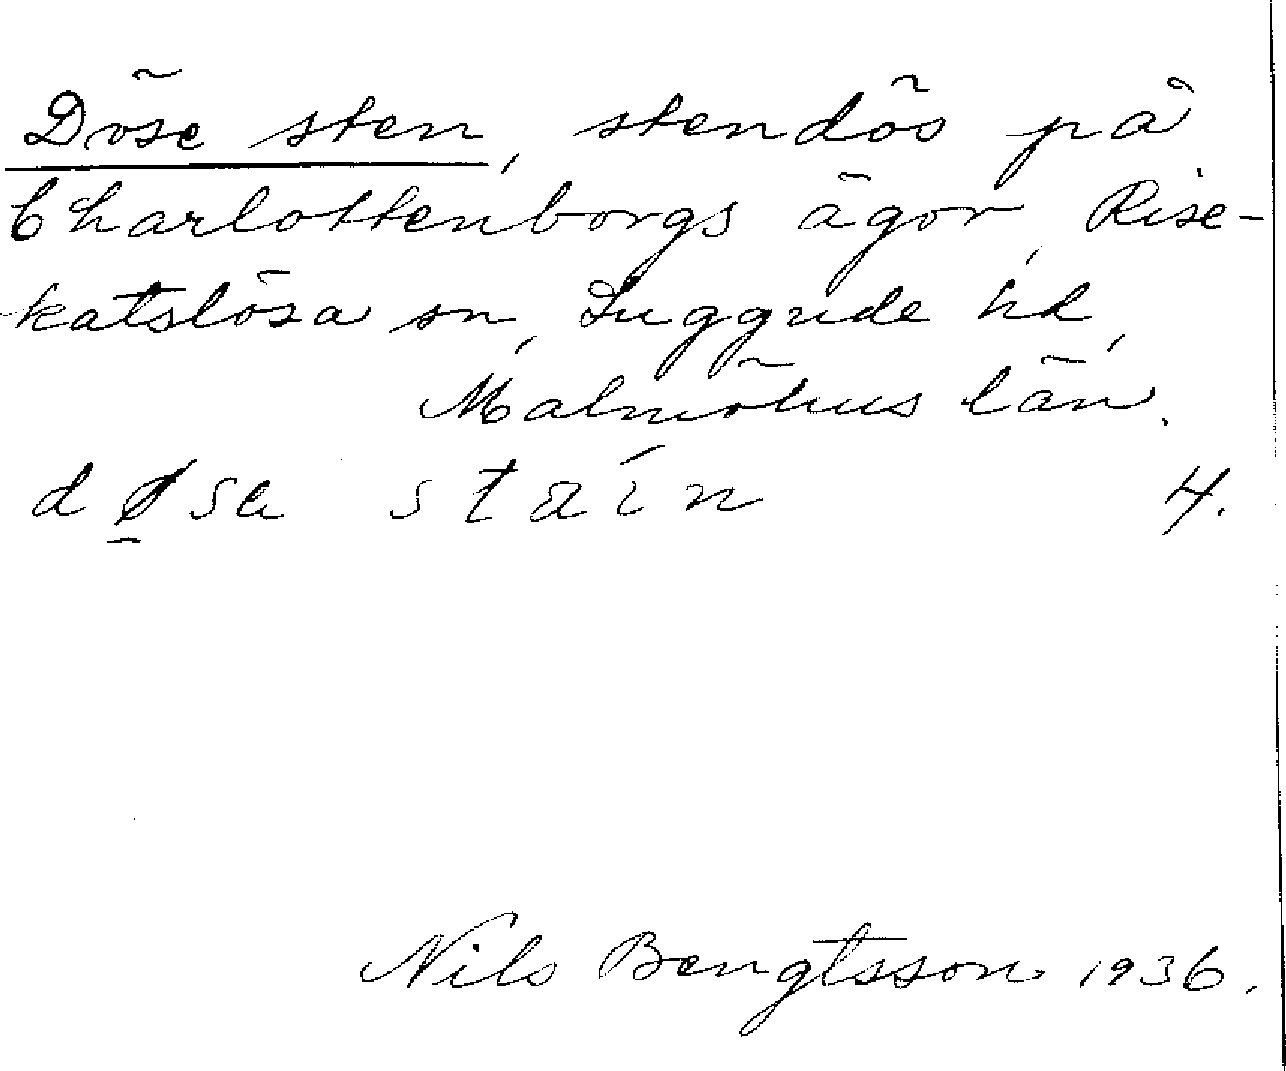 Döse sten, stendös på
Charlottenborgs ägor, Rise-
katslösa sn, Luggude hd,
Malmöhus län.
dø̱sa staín 4.
Nils Bengtsson 1936.